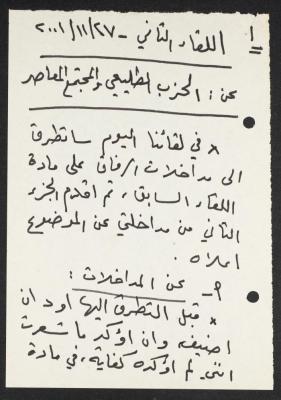 ١
اللقاء الثاني - ٢٧/١١/٢٠٠١
عن: الحزب الطليعي والمجتمع المعاصر
* في لقائنا اليوم سأتطرق
الى مداخلات الرفاق على مادة
اللقاء السابق، ثم اقدم الجزء
الثاني من مداخلتي عن الموضوع
اعلاه.
- عن المداخلات:
* قبل التطرق اليها اود ان
اضيف وان اؤكد ما شعرت
انني لم اؤكده كفاية، في مادة